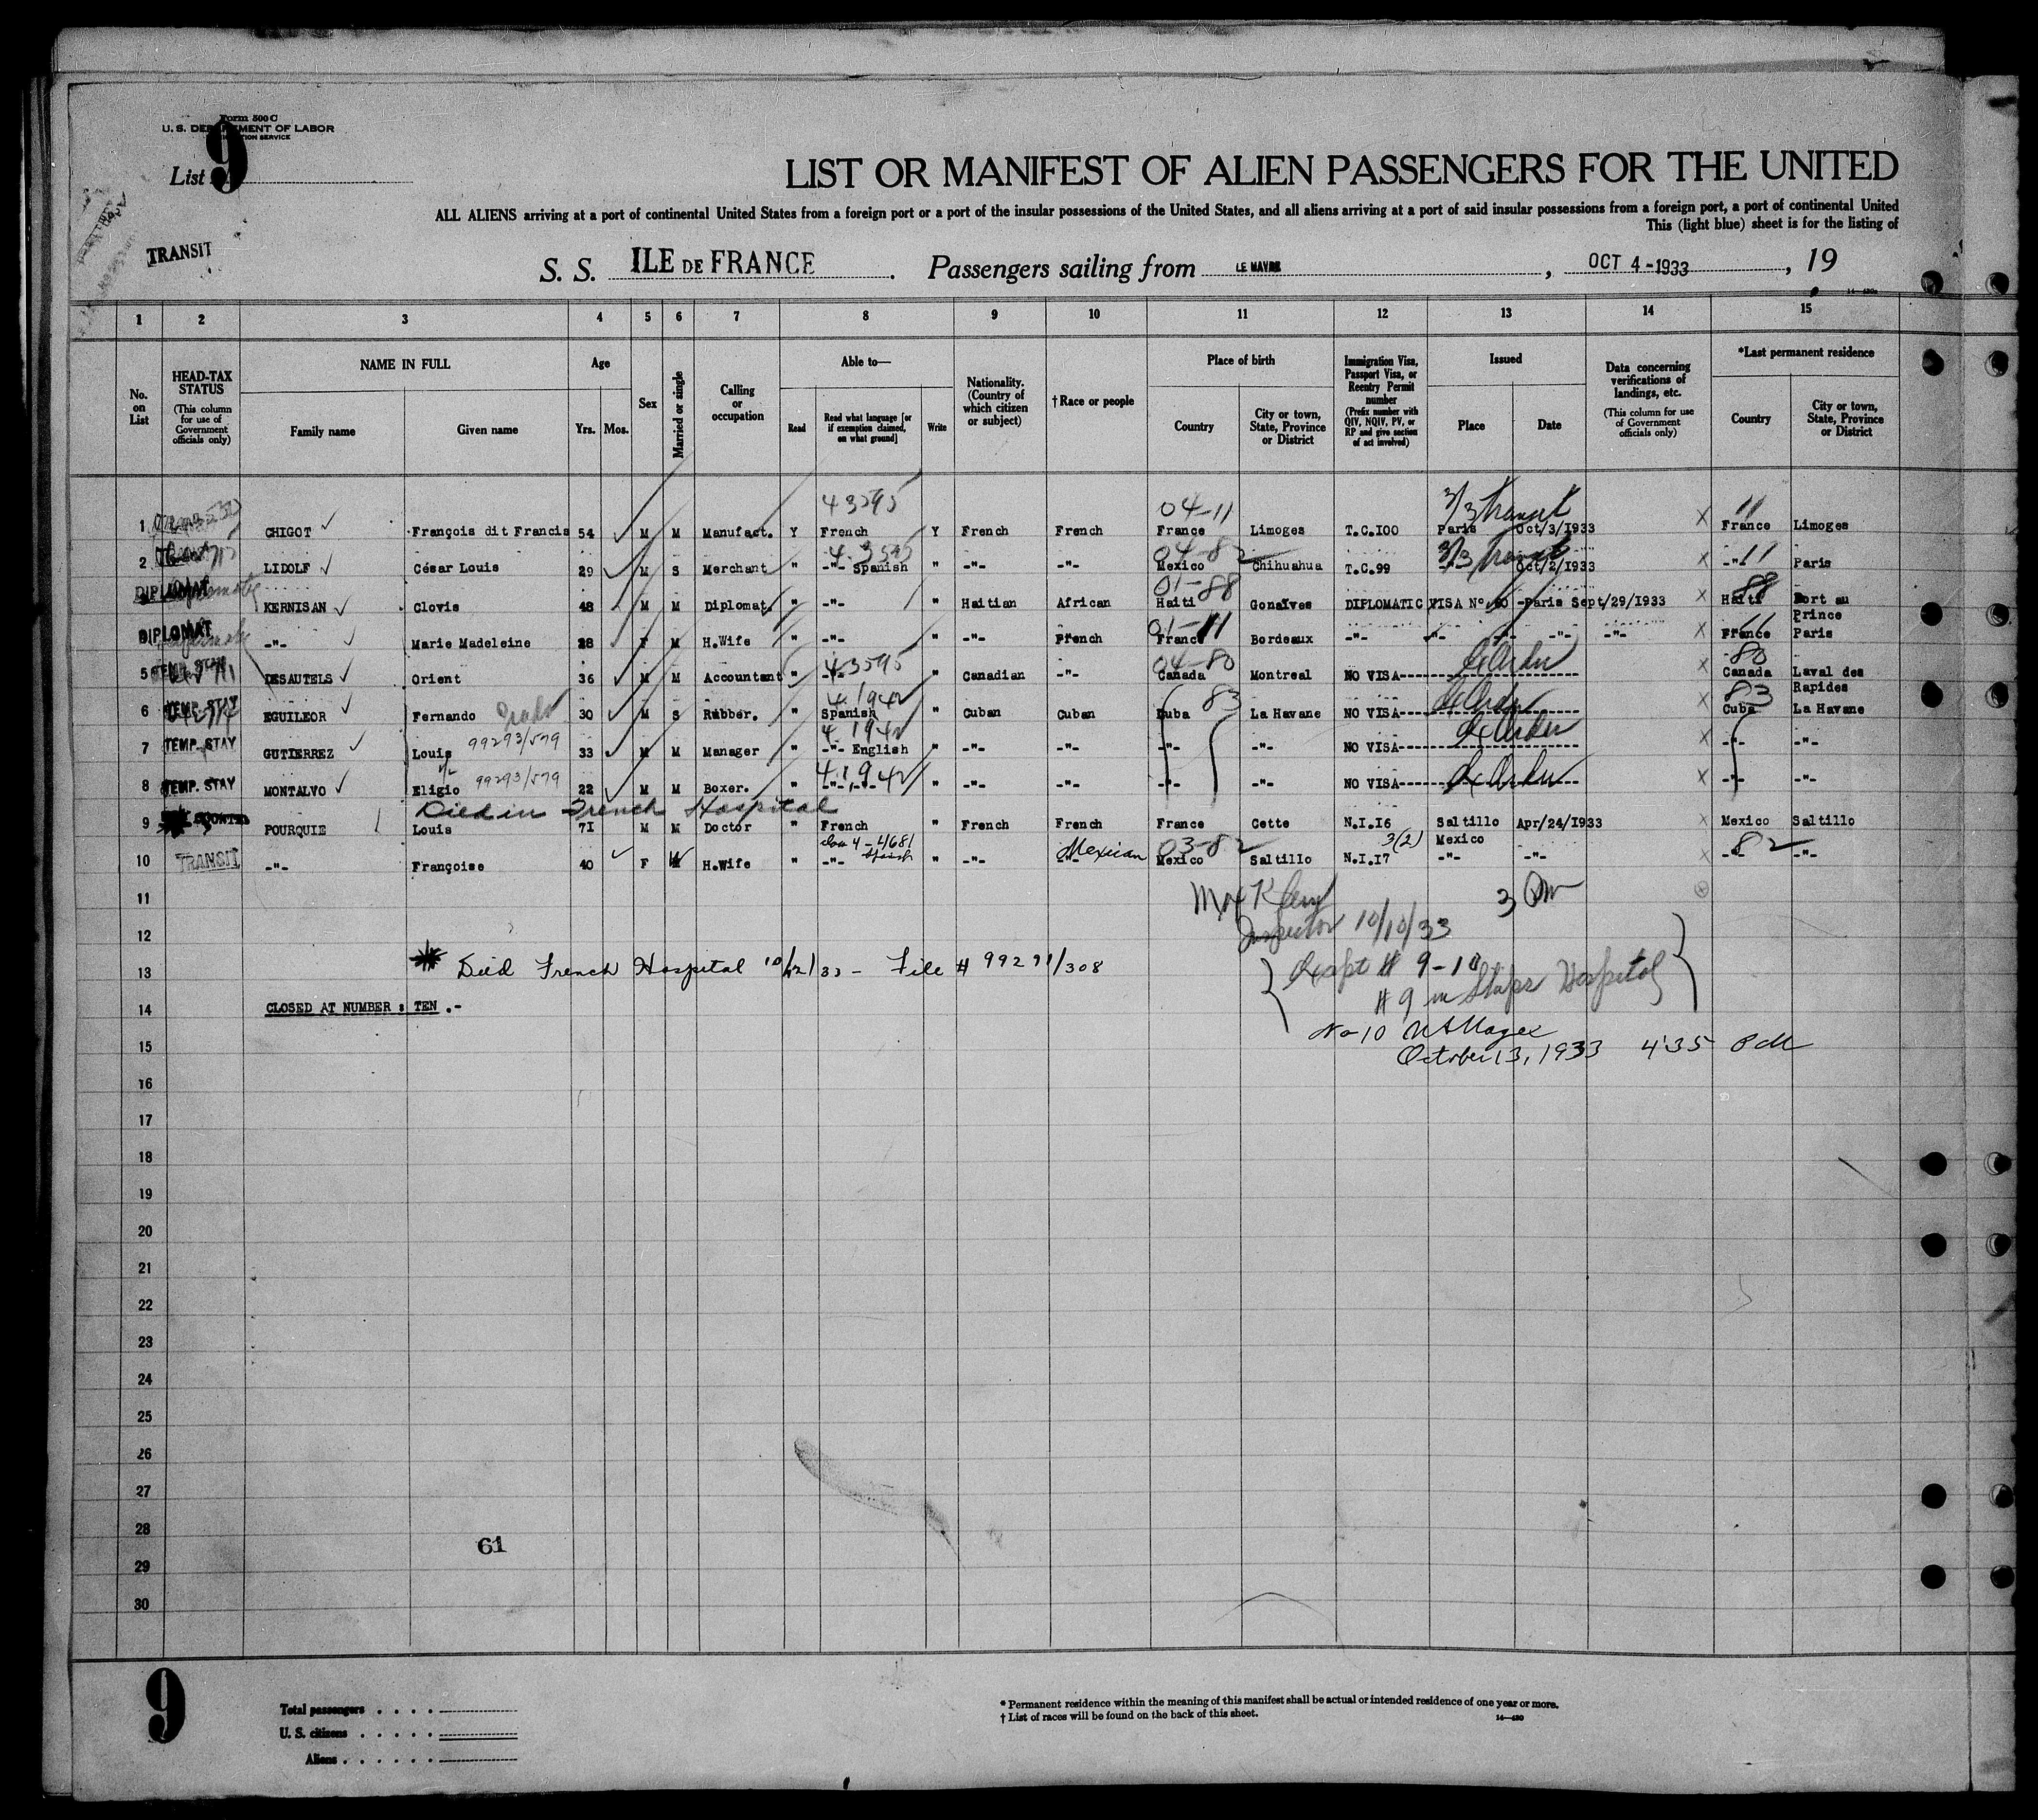 Form 500 C
U. S. DEPARTMENT OF LABOR
List 9
TRANSIT
LIST OR MANIFEST OF ALIEN PASSENGERS FOR THE UNITED
ALL ALIENS arriving at a port of continental United States from a foreign port or a port of the insular possessions of the United States, and all aliens arriving at a port of said insular possessions from a foreign port, a port of continental United
This (light blue) sheet is for the listing of
S. S. ILE DE FRANCE. Passengers sailing from LE HAVRE, OCT 4-1933, 19
1 2 3 4 5 6 7 8 9 10 11 12 13 14 15
No. on List
HEAD-TAX STATUS (This column for use of Government officials only)
NAME IN FULL
Family name Given name
Age
Yrs. Mos.
Sex
Married or single
Calling or occupation
Able to—
Read Read what language [or if exemption claimed, on what ground] Write
Nationality. (Country of which citizen or subject)
†Race or people
Place of birth
Country City or town, State, Province or District
Immigration Visa, Passport Visa, or Reentry Permit number (Prefix number with QIV, NQIV, PV, or RP and give section of act involved)
Issued
Place Date
Data concerning verifications of landings, etc. (This column for use of Government officials only)
*Last permanent residence
Country City or town, State, Province or District
43595 04-11 3/3 Transit 11
1 CHIGOT François dit Francis 54 M M Manufact. Y French Y French French France Limoges T.C.100 Paris Oct/3/1933 X France Limoges
04-82 3/3 Transit 11
2 LIDOLF César Louis 29 M S Merchant " -"- Spanish " -"- -"- Mexico Chihuahua T.C.99 Oct/2/1933 X -"- Paris
DIPLOMAT 01-88 88
KERNISAN Clovis 48 M M Diplomat. " -"- " Haitian African Haiti Gonaïves DIPLOMATIC VISA N° -Paris Sept/29/1933 X Haiti Port au Prince
DIPLOMAT 01-11 11
-"- Marie Madeleine 28 F M H.Wife " -"- " -"- French France Bordeaux -"- -"- -"- -"- -"- X France Paris
43595 04-80 80
5 DESAUTELS Orient 36 M M Accountant " -"- " Canadian -"- Canada Montreal NO VISA X Canada Laval des Rapides
4.1942 83 83
6 TEMP. STAY EGUILEOR Fernando 30 M S Rubber. " Spanish " Cuban Cuban Cuba La Havane NO VISA Cuba La Havane
99293/579 4.1942
7 TEMP. STAY GUTIERREZ Louis 33 M M Manager " -"- English " -"- -"- -"- -"- NO VISA X -"- -"-
99293/579 4.1942
8 TEMP. STAY MONTALVO Eligio 22 M M Boxer. " -"- -"- " -"- -"- -"- -"- NO VISA X -"- -"-
Died in French Hospital
9 POURQUIE Louis 71 M M Doctor " French " French French France Cette N.I.16 Saltillo Mexico Apr/24/1933 X Mexico Saltillo
4-4681 Spanish Mexican 03-82 3(2) 82
10 TRANSIT -"- Françoise 40 F H.Wife " -"- " -"- -"- Mexico Saltillo N.I.17 -"- -"- -"- -"-
11
Inspector 10/10/33
12
Except # 9-10
13 Died French Hospital File # 99291/308
# 9 in Hospital
14 CLOSED AT NUMBER : TEN .-
No 10
15 October 13, 1933 4:35 PM
16
17
18
19
20
21
22
23
24
25
26
27
28
61
29
30
9
Total passengers
U. S. citizens
Aliens
* Permanent residence within the meaning of this manifest shall be actual or intended residence of one year or more.
† List of races will be found on the back of this sheet.
14—430